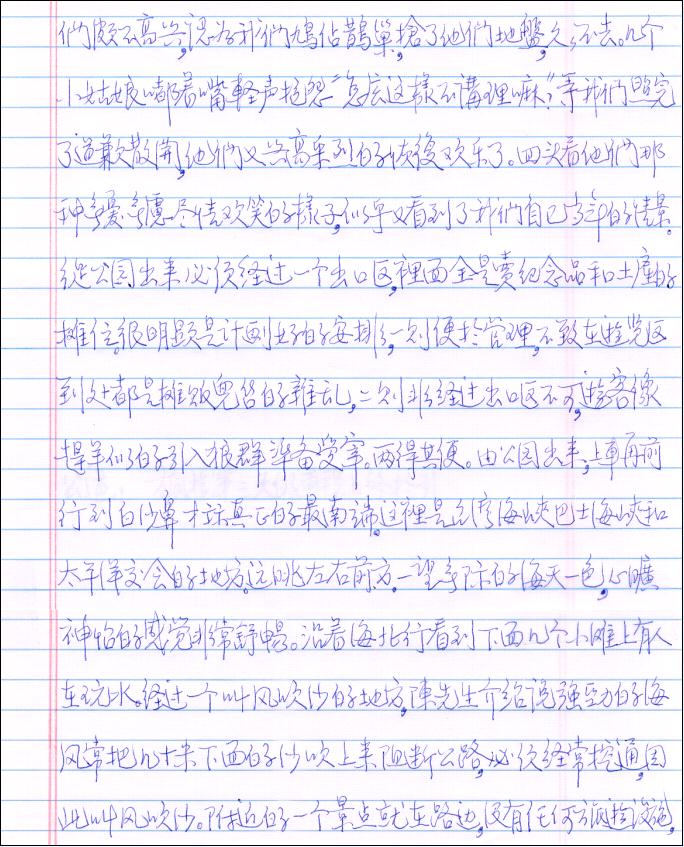 们頗不高兴,認为我们鳩佔鵲巢,搶了他们地盤,久久不去。几个
小姑娘嘟着嘴輕声抱怨“怎広这樣不講理嘛?”等我们照完
了道歉散開,他们又兴高采烈的恢復欢乐了。回头看他们那
种无憂无慮尽情欢笑的樣子,似乎又看到了我们自己当年的情景。
從公园出来必须經过一个出口区,裡面全是賣紀念品和土産的
攤位。很明顕是计劃好的安排,一则便扵管理,不致在遊览区
到处都是攤販兜售的雜乱,二则非經过出口区不可,遊客像
趕羊似的引入狼群準备受宰。两得其便。由公园出来,上車再前
行到白沙鼻才是真正的最南端。这裡是台湾海峡巴士海峡和
太平洋交会的地方。远眺左右前方,一望无际的海天一色,心曠
神怡的感觉非常舒暢。沿着海北行看到下面几个小灘上有人
在玩水。經过一个叫风吹沙的地方,陳先生介绍说强劲的海
风常把几十米下面的沙吹上来阻断公路,必须經常挖通,因
此叫风吹沙。附近的一个景点就在路边,没有任何旅遊设施,